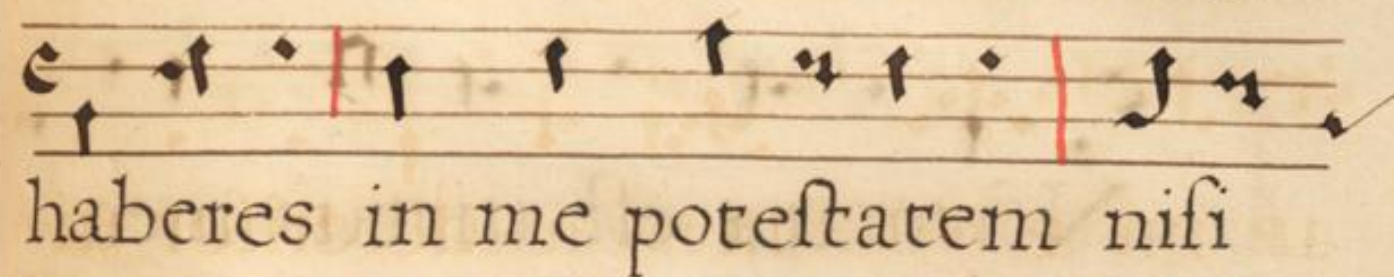 haberes in me poteſtatem niſi